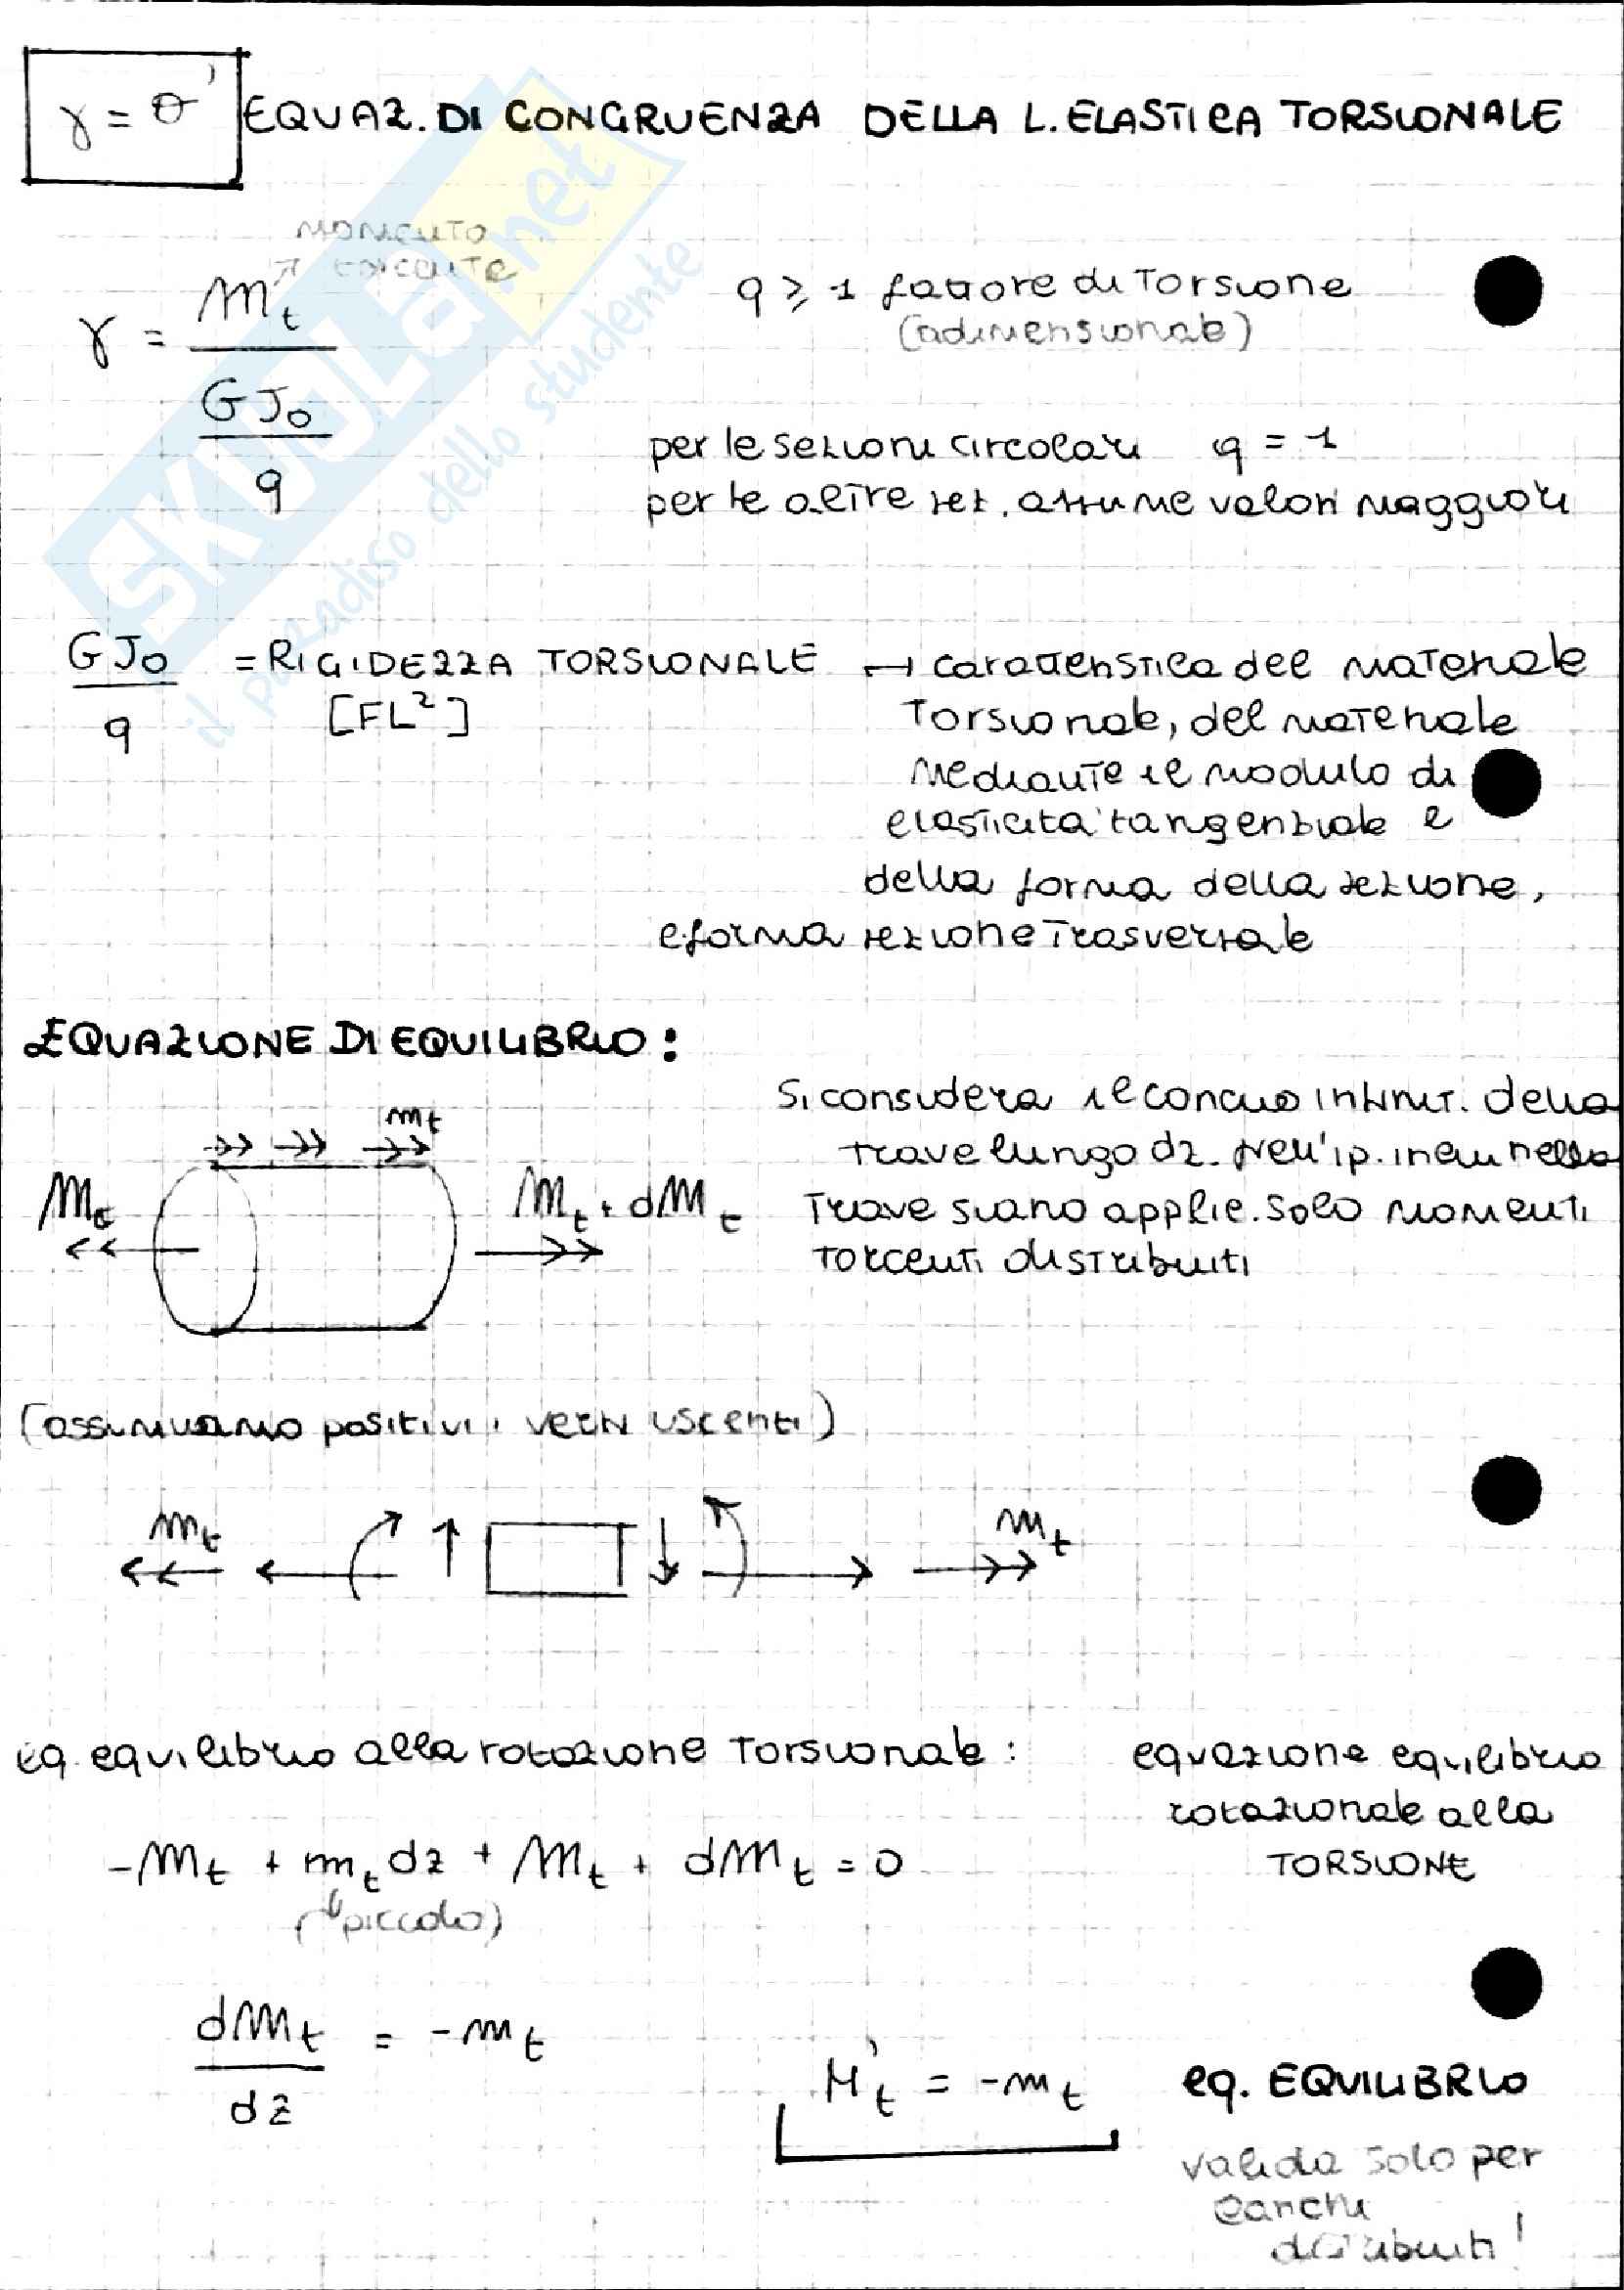 γ = θ' EQUAZ. DI CONGRUENZA DELLA L. ELASTICA TORSIONALE
momento
torcente
γ = Mt / (GJ0 / q)
q ⩾ 1 fattore di Torsione
(adimensionale)
per le sezioni circolari q = 1
per le altre sez. assume valori maggiori
GJ0 / q = RIGIDEZZA TORSIONALE → caratteristica del materiale
[FL²]
Torsionale, del materiale
mediante il modulo di
elasticità tangenziale e
della forma della sezione,
e forma sezione Trasversale
EQUAZIONE DI EQUILIBRIO:
Si considera il concio infinit. della
trave lungo dz. Nell'ip. in cui nella
Trave siano applic. solo momenti
Torcenti distribuiti
mt
Mt
Mt + dMt
(assumiamo positivi i versi uscenti)
Mt
Mt
eq. equilibrio alla rotazione Torsionale:
equazione equilibrio
rotazionale alla
TORSIONE
-Mt + mt dz + Mt + dMt = 0
(↓ piccolo)
dMt / dz = -mt
M't = -mt
eq. EQUILIBRIO
valida solo per
carichi
distribuiti!
SKUOLA.net
il paradiso dello studente